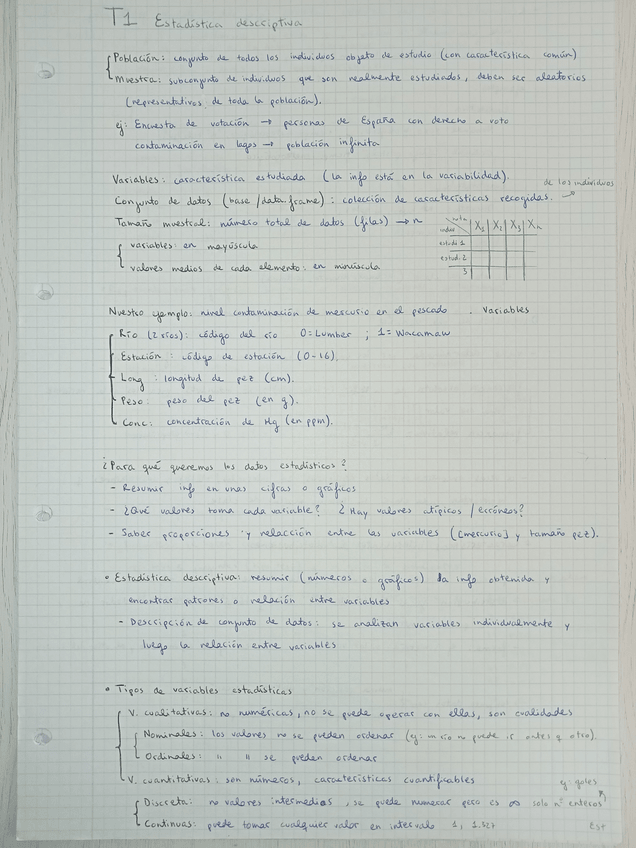 T1 Estadística descriptiva
Población: conjunto de todos los individuos objeto de estudio (con característica común)
Muestra: subconjunto de individuos que son realmente estudiados, deben ser aleatorios
(representativos de toda la población).
ej: Encuesta de votación → personas de España con derecho a voto
contaminación en lagos → población infinita
Variables: característica estudiada (la info está en la variabilidad).
de los individuos
Conjunto de datos (base/data.frame): colección de características recogidas.
Tamaño muestral: número total de datos (filas) → n
X1 X2 X3 Xn
estudi 1
estudi 2
3
variables: en mayúscula
valores medios de cada elemento: en minúscula
Nuestro ejemplo: nivel contaminación de mercurio en el pescado . Variables
Río (2 ríos): código del río 0=Lumber ; 1=Wacamaw
Estación : código de estación (0-16).
Long : longitud de pez (cm).
Peso: peso del pez (en g).
Conc: concentración de Hg (en ppm).
¿Para qué queremos los datos estadísticos?
- Resumir info en unas cifras o gráficos
- ¿Qué valores toma cada variable? ¿Hay valores atípicos / erróneos?
- Saber proporciones y relacción entre las variables ([mercurio] y tamaño pez).
• Estadística descriptiva: resumir (números o gráficos) la info obtenida y
encontrar patrones o relación entre variables
- Descripción de conjunto de datos: se analizan variables individualmente y
luego la relación entre variables
• Tipos de variables estadísticas
V. cualitativas: no numéricas, no se puede operar con ellas, son cualidades
Nominales: los valores no se pueden ordenar (ej: un río no puede ir antes q otro).
Ordinales: " " se pueden ordenar
V. cuantitativas: son números, características cuantificables
ej: goles
Discreta: no valores intermedios, se puede numerar pero es ∞ solo nº enteros
Continuas: puede tomar cualquier valor en intervalo 1, 1.527